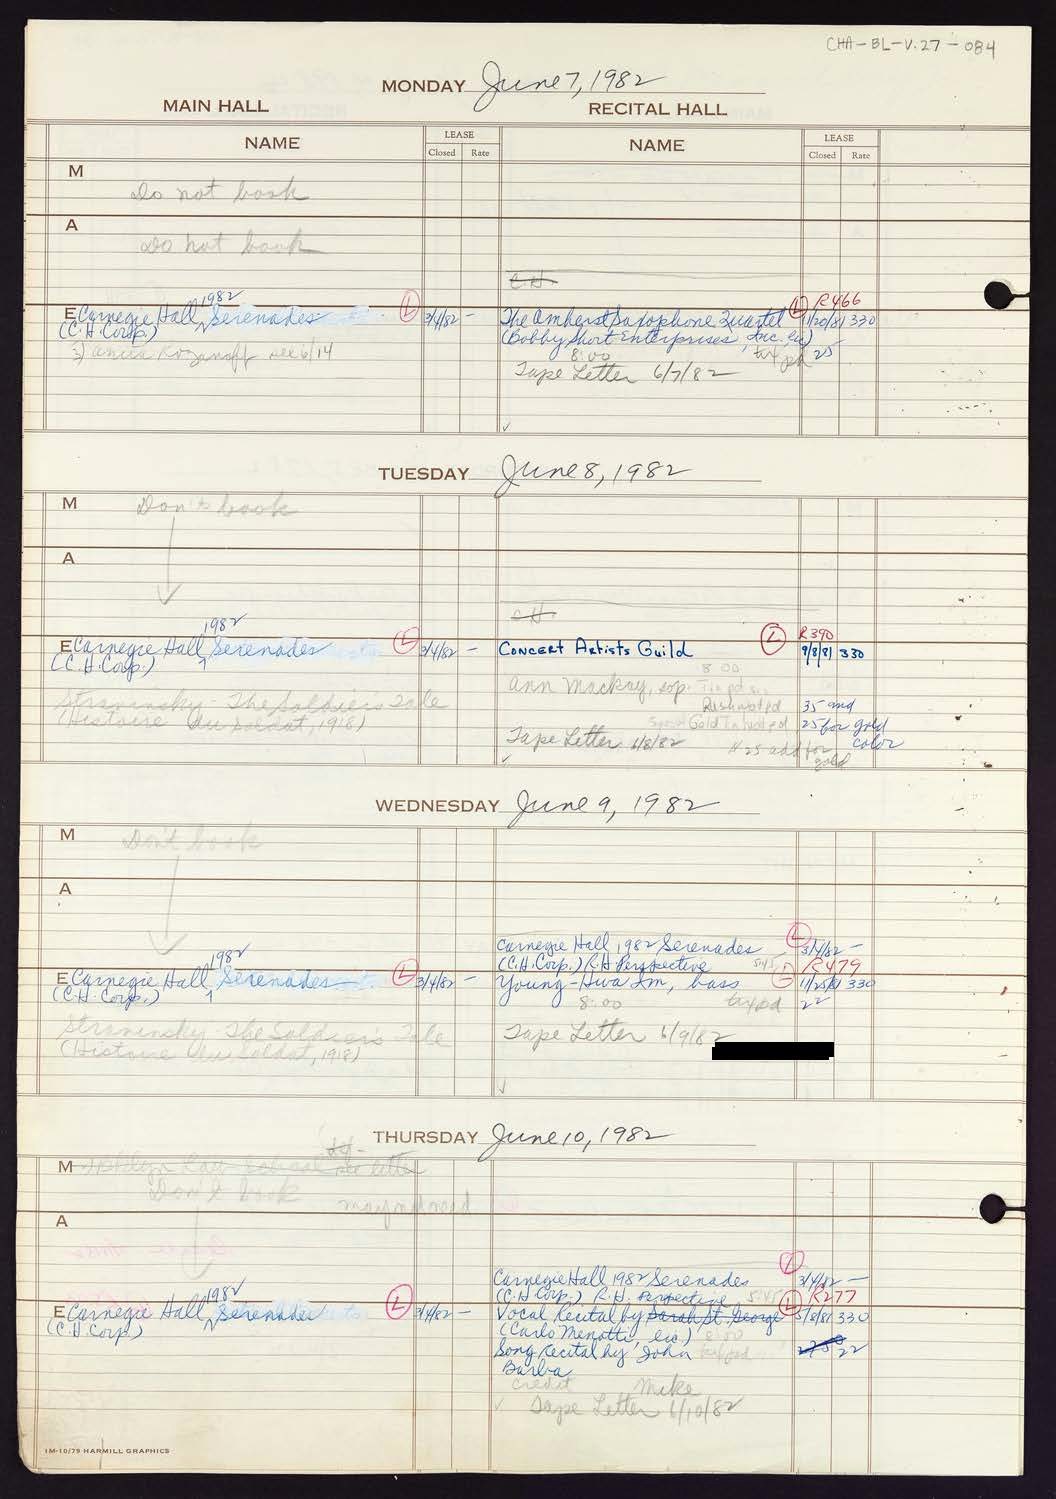 CHA-BL-V.27-084
MONDAY June 7, 1982
MAIN HALL
RECITAL HALL
NAME
LEASE
Closed Rate
NAME
LEASE
Closed Rate
M
Do not book
A
Do not book
C H
1982
E Carnegie Hall Serenades L 3/4/82 -
(C.H. Corp.)
see 6/14
L R466
The Amherst Saxophone Quartet 1/20/81 330
(Bobby Short Enterprises, Inc. lic)
8:00 tax pd 25
Tape Letter 6/7/82
TUESDAY June 8, 1982
M
Don't book
A
C H
1982
E Carnegie Hall Serenades L 3/4/82 -
(C.H. Corp.)
Stravinsky - The Soldier's Tale
(Histoire du Soldat, 1918)
L R390
Concert Artists Guild 9/8/81 330
8 00
Ann Mackay, sop.
35 and
Special Gold 25 for gold
color
Tape Letter 6/8/82 # 25 add for
gold
WEDNESDAY June 9, 1982
M
Don't book
A
1982
E Carnegie Hall Serenades L 3/4/82 -
(C.H. Corp.)
Stravinsky - The Soldier's Tale
(Histoire du Soldat, 1918)
L
Carnegie Hall 1982 Serenades 3/4/82 -
(C.H. Corp.) R.H. Perspective 5:45 L R479
Young-Hwa Im, bass 11/25/81 330
8:00 tax pd 22
Tape Letter 6/9/82
THURSDAY June 10, 1982
M Law School see letter
Don't book
A
1982
E Carnegie Hall Serenades L 3/4/82 -
(C.H. Corp.)
L
Carnegie Hall 1982 Serenades 3/4/82 -
(C.H. Corp.) R.H. Perspective 5:45 L R277
Vocal Recital by Sarah St. George 5/8/81 330
(Carlo Menotti, lic.) 8:00
Song Recital by John tax pd 22
Barba
credit Mike
Tape Letter 6/10/82
1M-10/79 HARMILL GRAPHICS